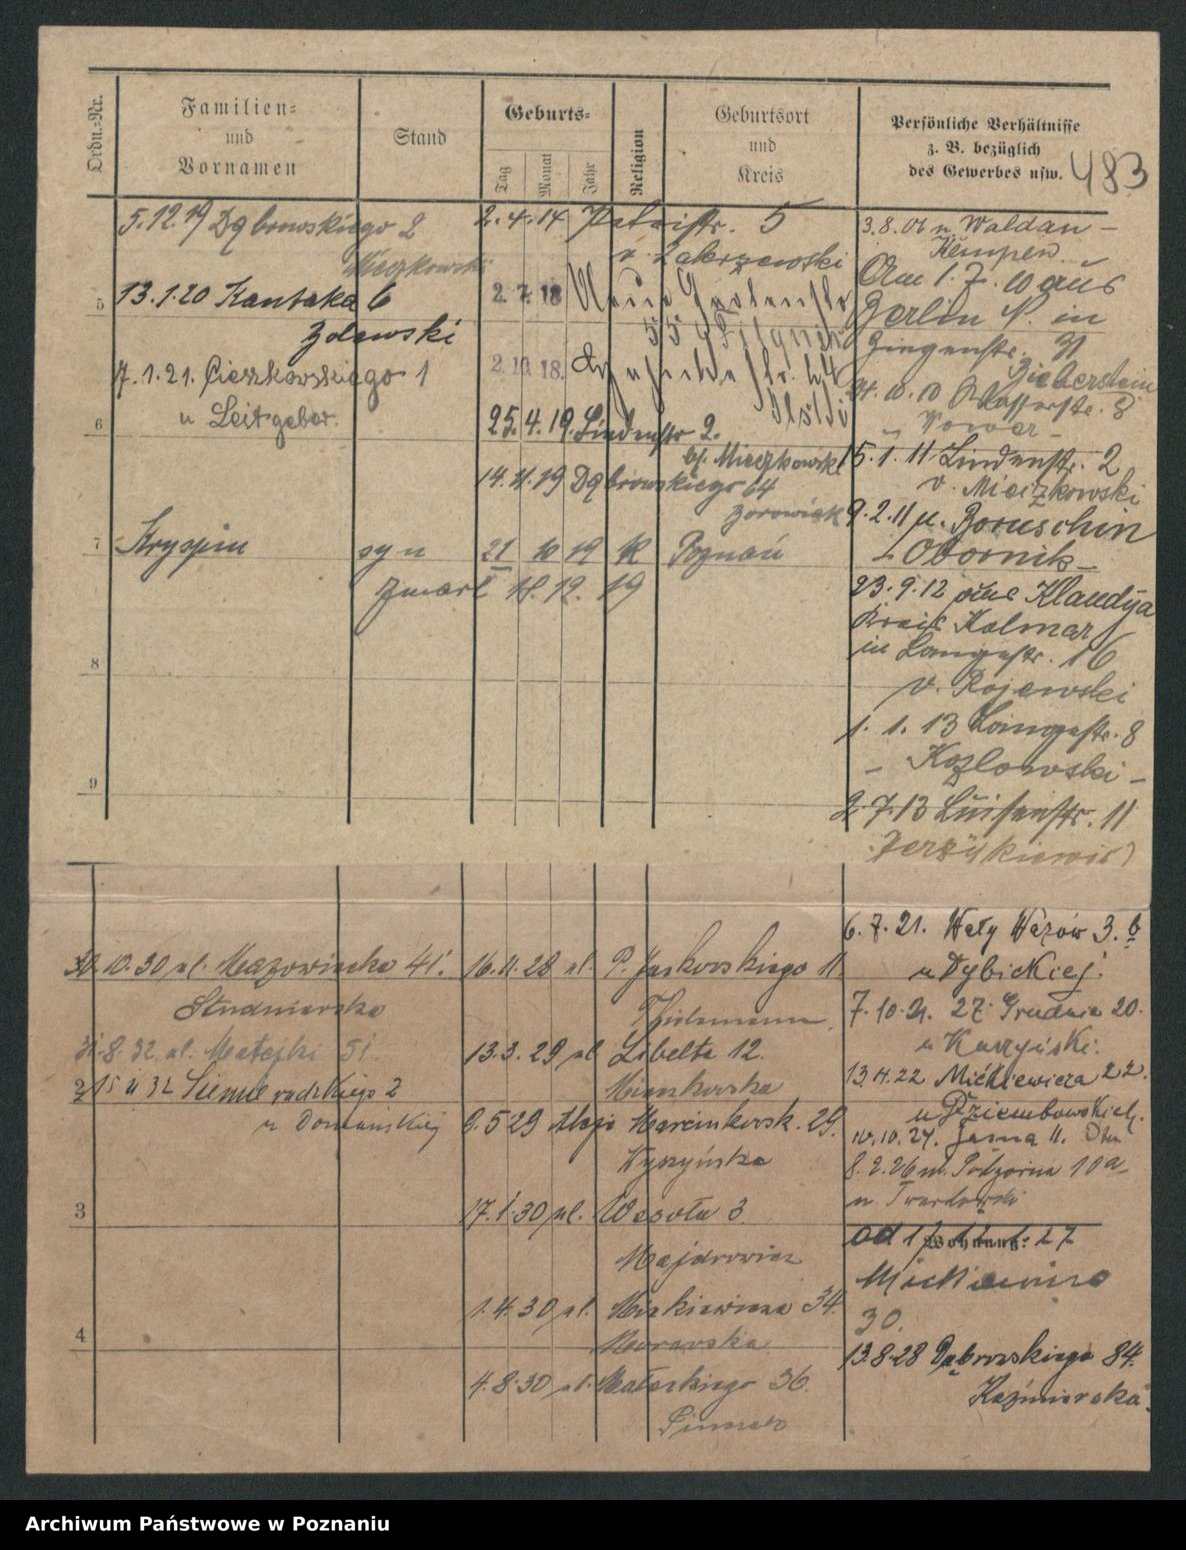 Ordn.-Nr.
Familien-
und
Vornamen
Stand
Geburts-
Tag
Monat
Jahr
Religion
Geburtsort
und
Kreis
Persönliche Verhältnisse
z. B. bezüglich
des Gewerbes usw.
483
5.12.19 Dąbrowskiego 2
Mieczkowski
5
13.1.20 Kantaka 6
Zolewski
7.1.21. Cieszkowskiego 1
u Leitgeber.
6
7
Kryspin
syn
21 10 19 K Poznań
zmarł 18. 12. 19
8
9
2.4.14 str. 5
v. Zakrzewski
2.7.18 Neue Gartenstr
2.10.18.
25.4.19. Lindenstr 2.
bj. Mieczkowski
14.11.19 Dąbrowskiego 64
3.8.01 n. Waldau -
Kempen
Am 1.7.10 aus
Berlin N. in
Ziegenstr. 31
Zieberstein
str. 8
15.1.11 Lindenstr. 2
v. Mieczkowski
9.2.11 n. Boruschin
Obornik -
23.9.12 aus Klaudyja
Kreis Kolmar
in Langestr. 16
v. Rojewski
1. 1. 13 Langestr. 8
- Kozlowski -
2.7.13 Luisenstr. 11
30.10.30 ul. Mazowiecka 41.
Studniarska
31.8.32 ul. Matejki 51
2
15 11 32 Siemiradzkiego 2
u Domańskiej
3
4
16.11.28 ul. P. Jackowskiego 11.
Thielemann.
13.3.29 ul Libelta 12.
Mienkowska
9.5 29 Aleje Marcinkowsk. 29.
Wyszyńska
17.1.30 ul. Wesoła 3.
Majdrowicz
1.4.30 ul. Mickiewicza 34.
Morawska
4.8.30 ul. Małeckiego 36.
6.7.21. Wały Wazów 3. b
u Dybickiej.
7.10.21. 27 Grudnia 20.
13.4.22 Mickiewicza 22.
u Dziembowskiej.
10.10.24. Jasna 11.
8.2.26 ul. Podgórna 10a
u Twardowski
Wohnung:
od 17 12 1. 27
Mickiewicza
30.
13.8.28 Dąbrowskiego 84.
Kaźmierska.
Archiwum Państwowe w Poznaniu